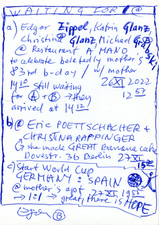 WAITING FOR
a) Edgar Zippel, Katrin Glanz,
Christine Glanz, Michael
@ Restaurant A MANO
to celebrate belatedly mother's
83rd b-day w/ mother
26 XI 2022
14:04 still waiting
for → they
arrived at 14
b) @ Eric POETTSCHACHER &
CHRISTINA RAPPINGER
the made GREAT Banana cake
Dovestr. 36 Berlin 27 XI
c) Start World Cup
GERMANY : SPAIN
@ mother's apt 27 XI
→ 1:1 → great, there is HOPE
B